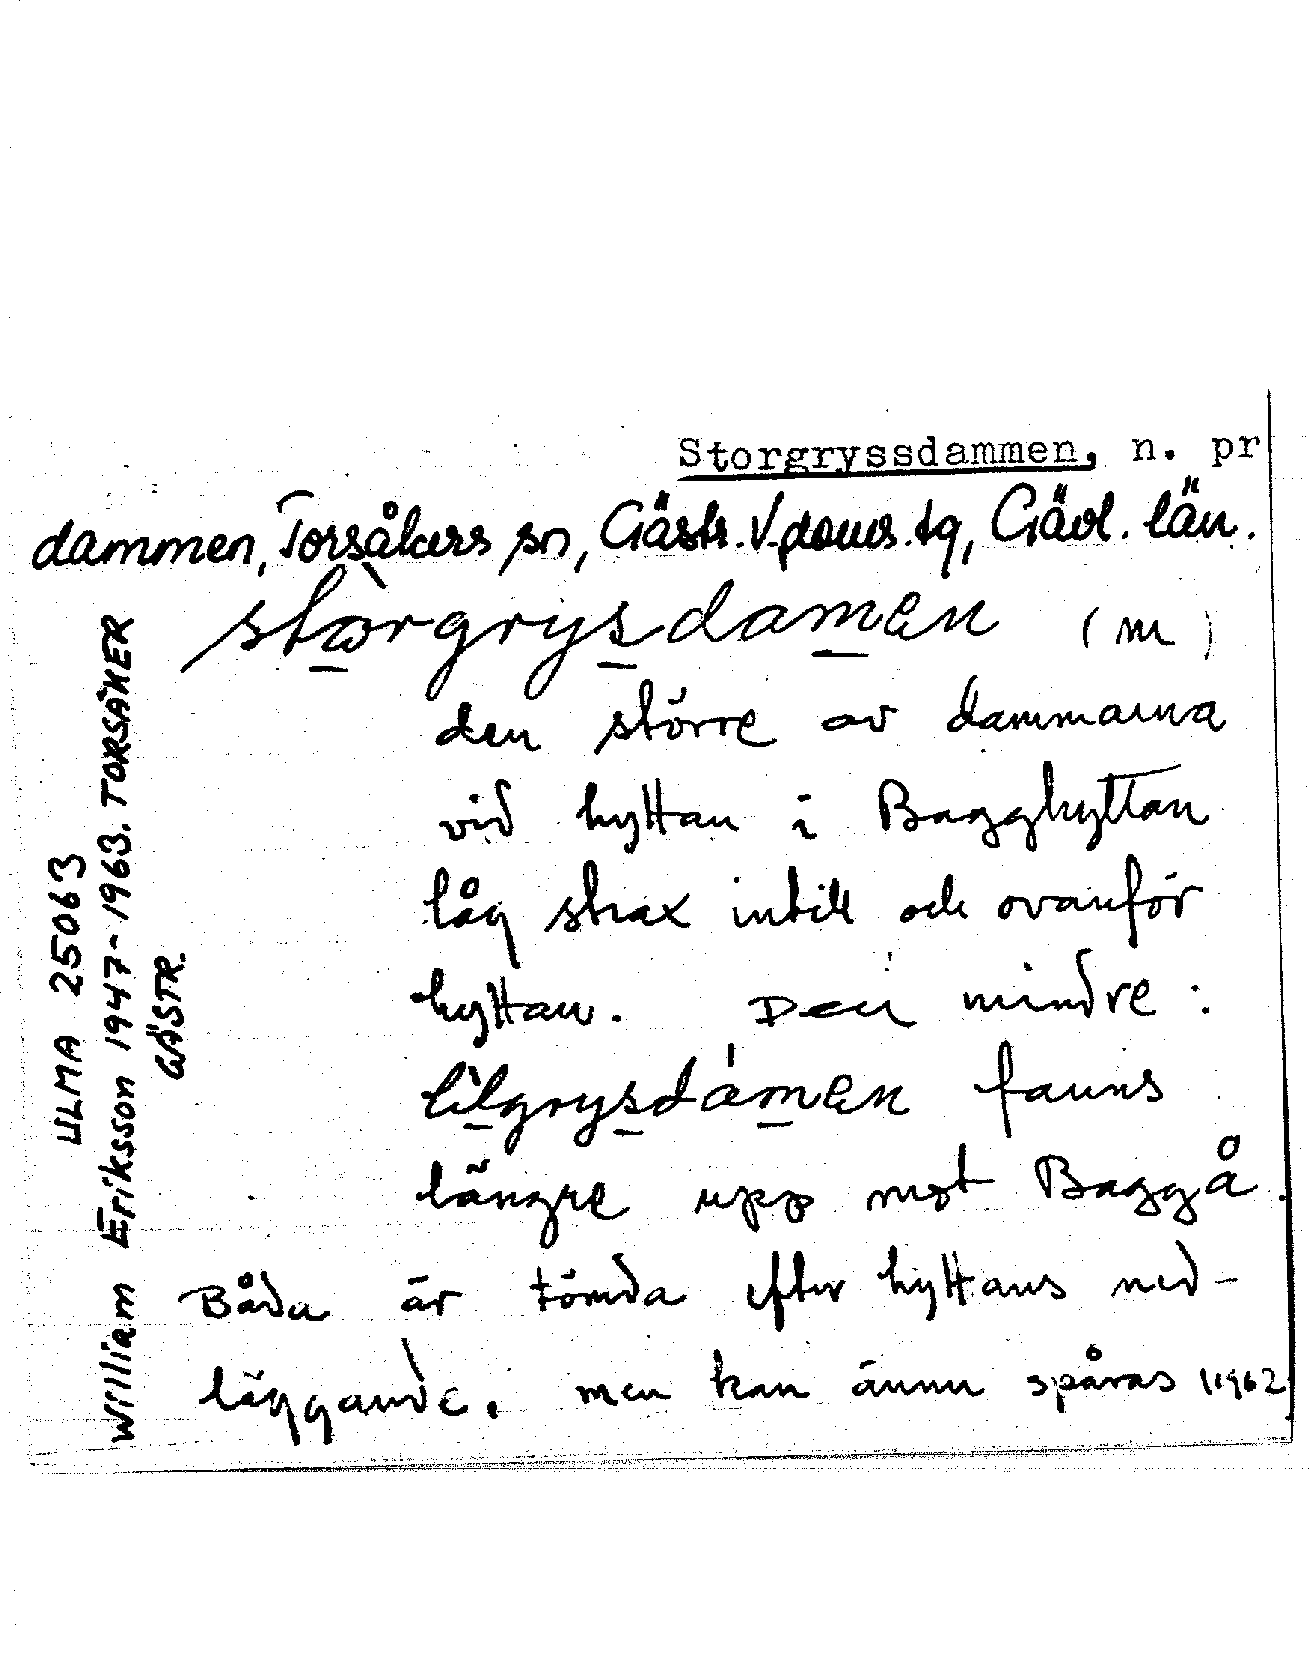 Storgryssdammen, n. pr
dammen, Torsåkers sn, Gästr. V. doms. tg, Gävl. län.
stòrgrysdamen (m)
den större av dammarna
vid hyttan i Bagghyttan
låg strax intill och ovanför
hyttan. Den mindre:
lìlgrysdámen fanns
längre upp mot Baggå.
Båda är tömda efter hyttans ned-
läggande. men kan ännu spåras 1962
ULMA 25063
William Eriksson 1947-1963. TORSÅKER
GÄSTR.